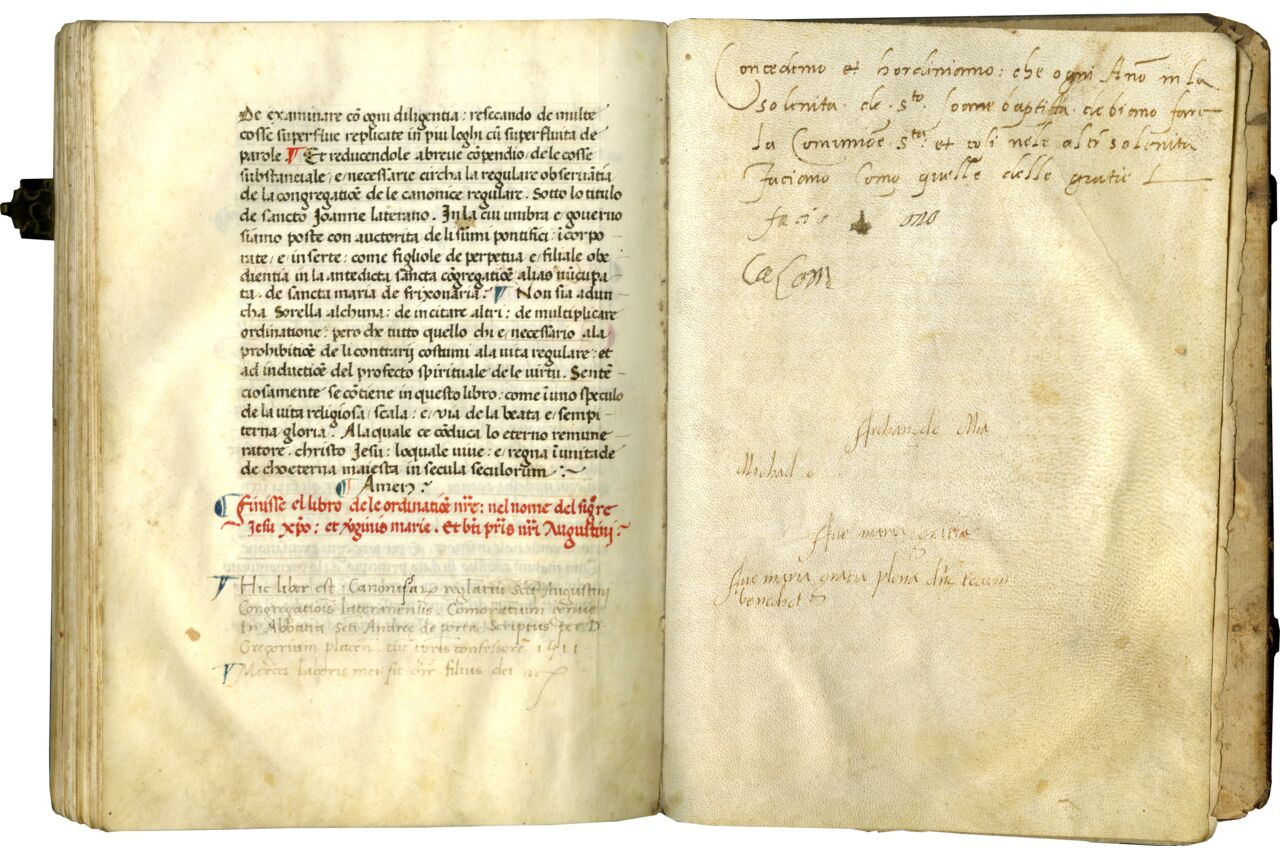 De examinare cō ogni diligentia : rescando de multe
cosse superflue replicate in piu loghi cū superfluita de
parole ¶ Et reducendole a breue cōpendio, de le cosse
substanciale, e, necessarie circha la regulare obseruātia
de la congregatiōe de le canonice regulare. Sotto lo titulo
de sancto Joanne laterano. In la cui umbra e gouerno
siamo poste con auctorita de li sūmi pontifici, ī corpo
rate, e, inserte : come figliole de perpetua e filiale obe
dientia in la antedicta sancta cōgregatiōe alias nūcupa
ta. de sancta maria de frixonaria : ¶ Non sia adun
cha Sorella alchuna : de incitare altri : de multiplicare
ordinatione : pero che tutto quello chi e, necessario a la
prohibitiōe de li contrarij costumi a la uita regulare : et
ad inductiōe del profecto spirituale de le uirtu. Sentē
ciosamente se cōtiene in questo libro : come ī uno speculo
de la uita religiosa, scala : e, via de la beata e, sempi
terna gloria. A la quale ce cōduca lo eterno remune
ratore. christo Jesu : lo quale uiue : e, regna ī unitade
de choeterna maiesta in secula seculorum :~
¶ Amen :
¶ Finisse el libro de le ordinatiōe nr̄e : nel nome del sig.re
Jesu xp̄o : et v̄ginis marie. Et bt̄i pr̄is nr̄i Augustini :~
¶ Hic liber est Canonicar reglariū Scti Augustini
Congregationis lateranensis Comorētium
In Abbatia Scti Andreę de porta Scriptus per D.
Gregorium placen. confessorē 1511
¶ Merces laboris mei sit filius dei
Concedemo et hordiniamo : che ogni Anō in la
solenita de s.to Joane baptista debiamo fare
la Comunioē s.ta et cosi nele altre solenita
Faciamo Como quelle delle gratie
Archan de Mia
Michael e
Aue maria gratia
Aue maria gratia plena dn̄e tecum
benedict